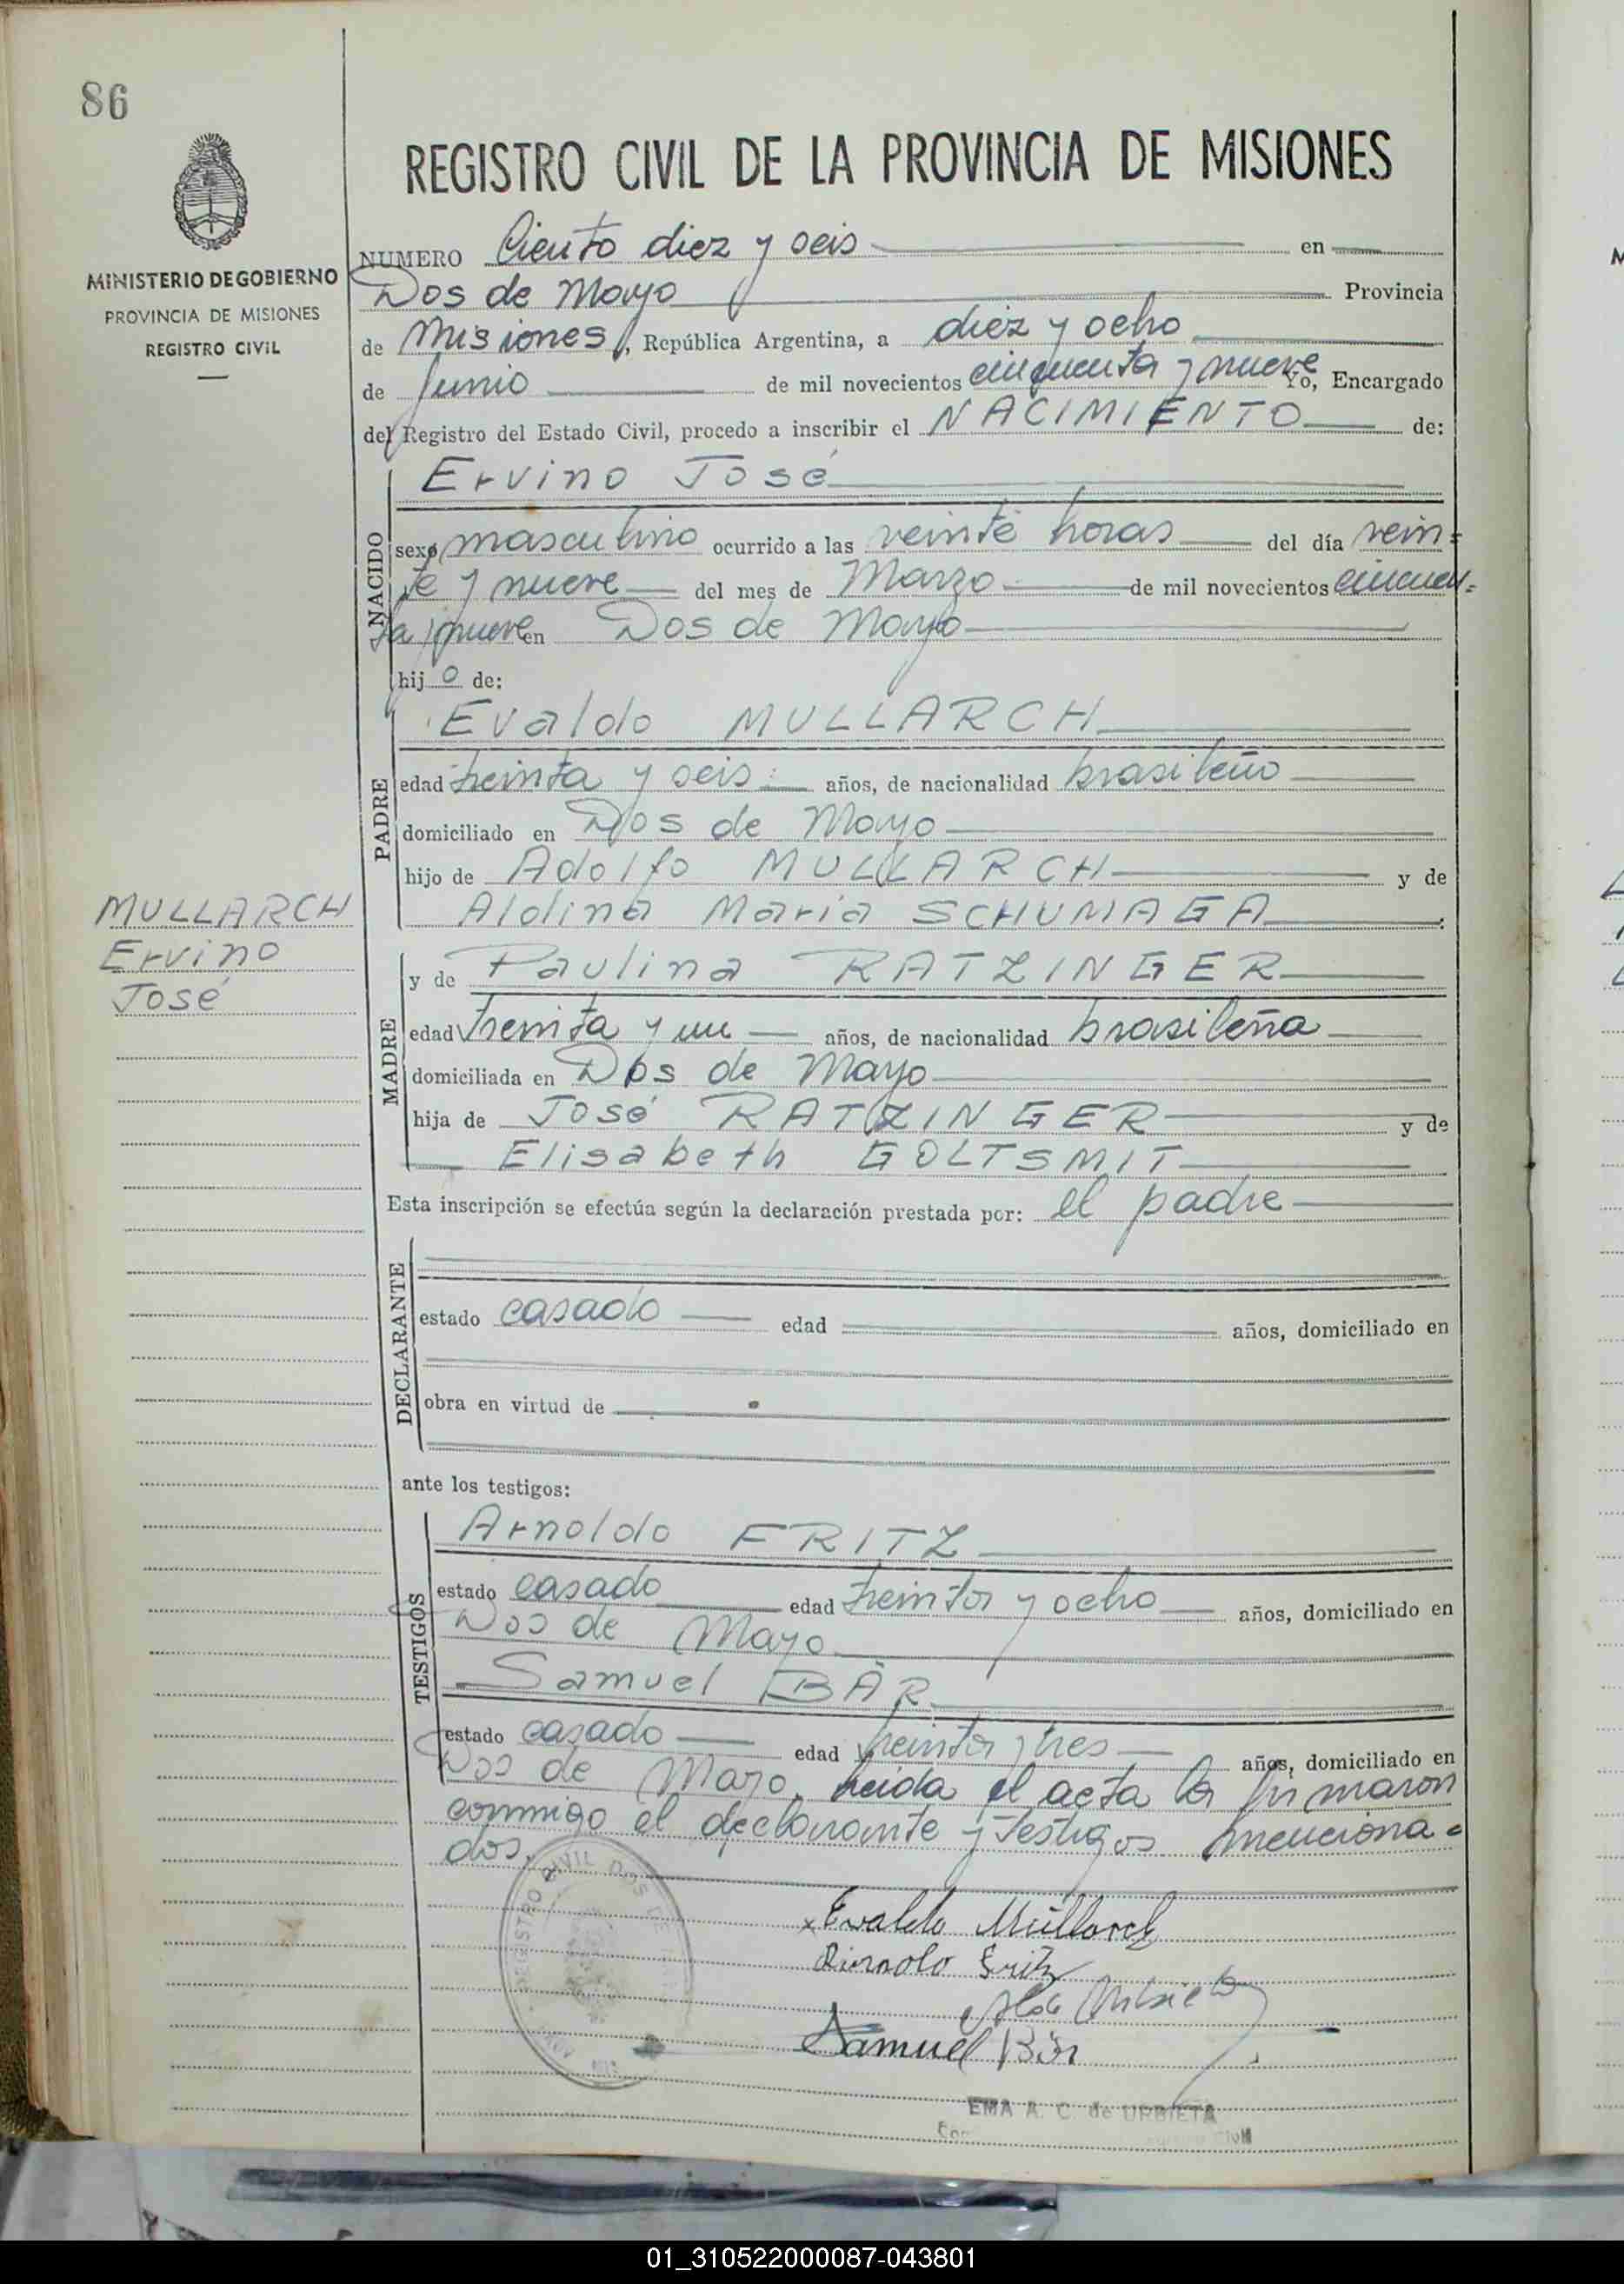 86
MINISTERIO DE GOBIERNO
PROVINCIA DE MISIONES
REGISTRO CIVIL
REGISTRO CIVIL DE LA PROVINCIA DE MISIONES
NUMERO Ciento diez y seis en
Dos de Mayo Provincia
de Misiones, República Argentina, a diez y ocho
de Junio de mil novecientos cincuenta y nueve Yo, Encargado
del Registro del Estado Civil, procedo a inscribir el NACIMIENTO de:
NACIDO
Ervino José
sexo masculino ocurrido a las veinte horas del día vein=
te y nueve del mes de Marzo de mil novecientos cincuen=
ta y nueve en Dos de Mayo
hijo de:
PADRE
Evaldo MULLARCH
edad treinta y seis años, de nacionalidad brasileño
domiciliado en Dos de Mayo
hijo de Adolfo MULLARCH y de
Aldina María SCHUMAGA
MULLARCH
Ervino
José
MADRE
y de Paulina RATZINGER
edad treinta y un años, de nacionalidad brasileña
domiciliada en Dos de Mayo
hija de José RATZINGER y de
Elisabeth GOLTSMIT
Esta inscripción se efectúa según la declaración prestada por: el padre
DECLARANTE
estado casado edad años, domiciliado en
obra en virtud de
ante los testigos:
TESTIGOS
Arnoldo FRITZ
estado casado edad treinta y ocho años, domiciliado en
Dos de Mayo
Samuel BÄR
estado casado edad treinta y tres años, domiciliado en
Dos de Mayo. Leida el acta la firmaron
conmigo el declarante y testigos menciona=
dos.
REGISTRO CIVIL DOS DE
Evaldo Müllarch
Arnoldo Fritz
Samuel Bär
EMA A. C. de URBIETA
Civil
01_310522000087-043801